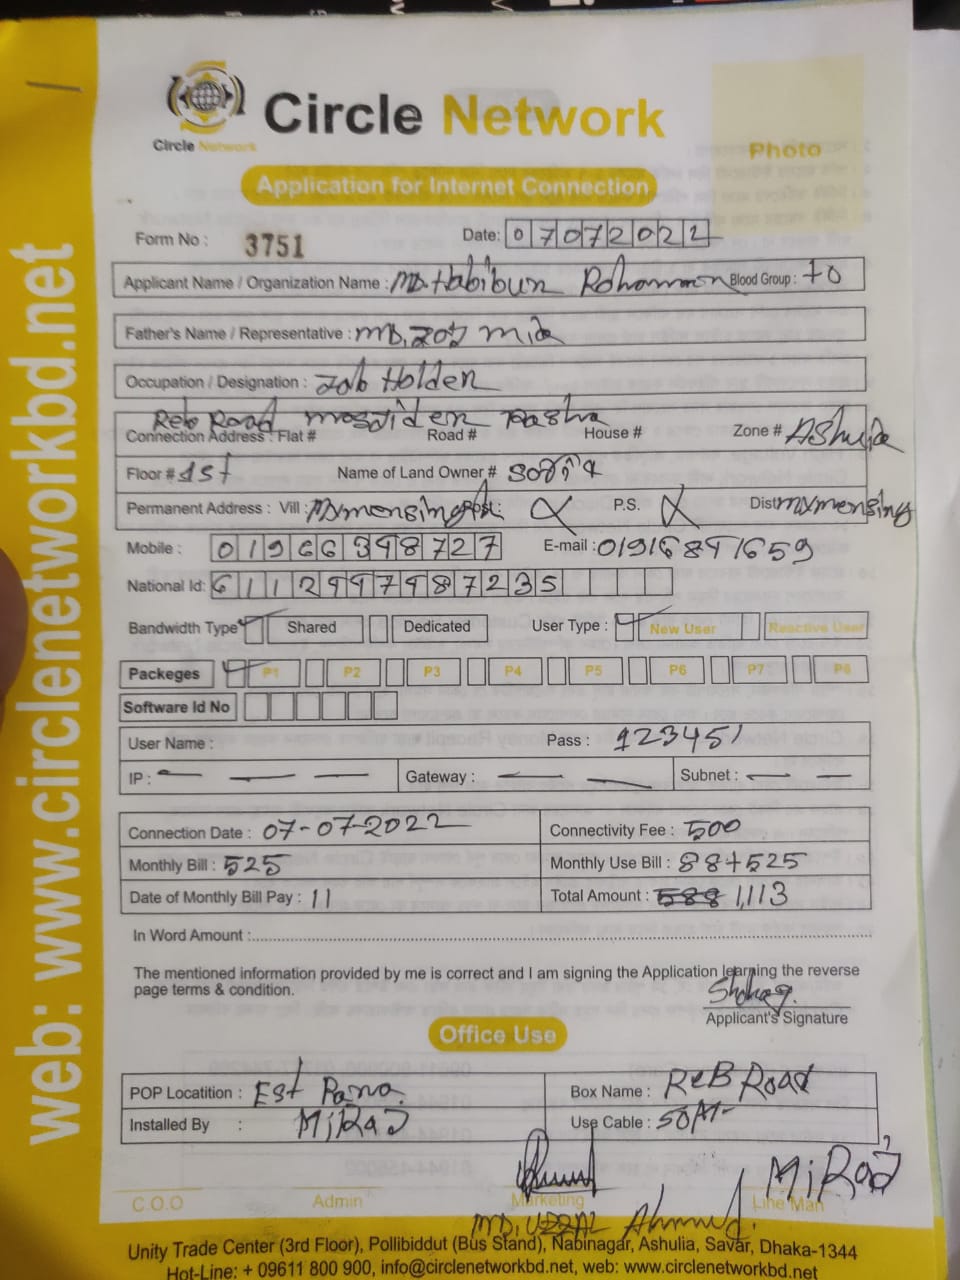 Circle Network
Circle Network
Photo
Application for Internet Connection
Form No : 3751 Date: 07072022
Applicant Name / Organization Name : MD. Habibun Rohaman Blood Group : +O
Father's Name / Representative : MD. Mia
Occupation / Designation : Job Holden
Reb Road
Connection Address : Flat # Road # House # Zone # AShulia
Floor # 1st Name of Land Owner #
Permanent Address : Vill : Mxmensing Post: P.S. Dist mxmensing
Mobile : E-mail :
National Id:
Bandwidth Type Shared Dedicated User Type : New User Reactive User
Packeges P1 P2 P3 P4 P5 P6 P7 P8
Software Id No
User Name : Pass : 12345
IP : Gateway : Subnet :
Connection Date : 07-07-2022 Connectivity Fee : 500
Monthly Bill : 525 Monthly Use Bill : 88+525
Date of Monthly Bill Pay : 11 Total Amount : 588 1,113
In Word Amount :
The mentioned information provided by me is correct and I am signing the Application learning the reverse
page terms & condition.
Shohag.
Applicant's Signature
Office Use
POP Locatition : Est Box Name : ReB Road
Installed By : MiRaJ Use Cable : 50M
MiRaJ
C.O.O Admin Marketing Line Man
MD. UZZAL Ahmed.
Unity Trade Center (3rd Floor), Pollibiddut (Bus Stand), Nabinagar, Ashulia, Savar, Dhaka-1344
Hot-Line: + 09611 800 900, info@circlenetworkbd.net, web: www.circlenetworkbd.net
web: www.circlenetworkbd.net